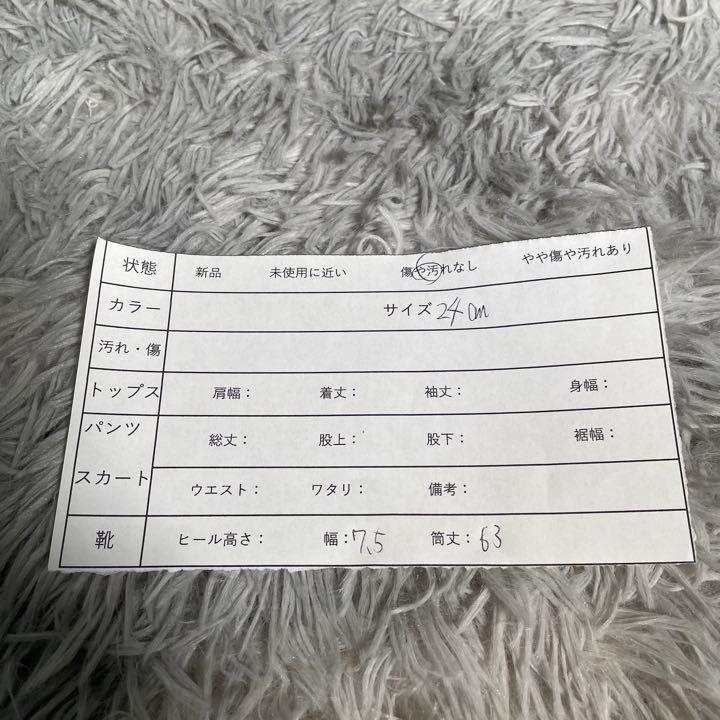 状態 新品 未使用に近い 傷や汚れなし やや傷や汚れあり
カラー サイズ 24cm
汚れ・傷
トップス 肩幅： 着丈： 袖丈： 身幅：
パンツ 総丈： 股上： 股下： 裾幅：
スカート ウエスト： ワタリ： 備考：
靴 ヒール高さ： 幅：7.5 筒丈：63